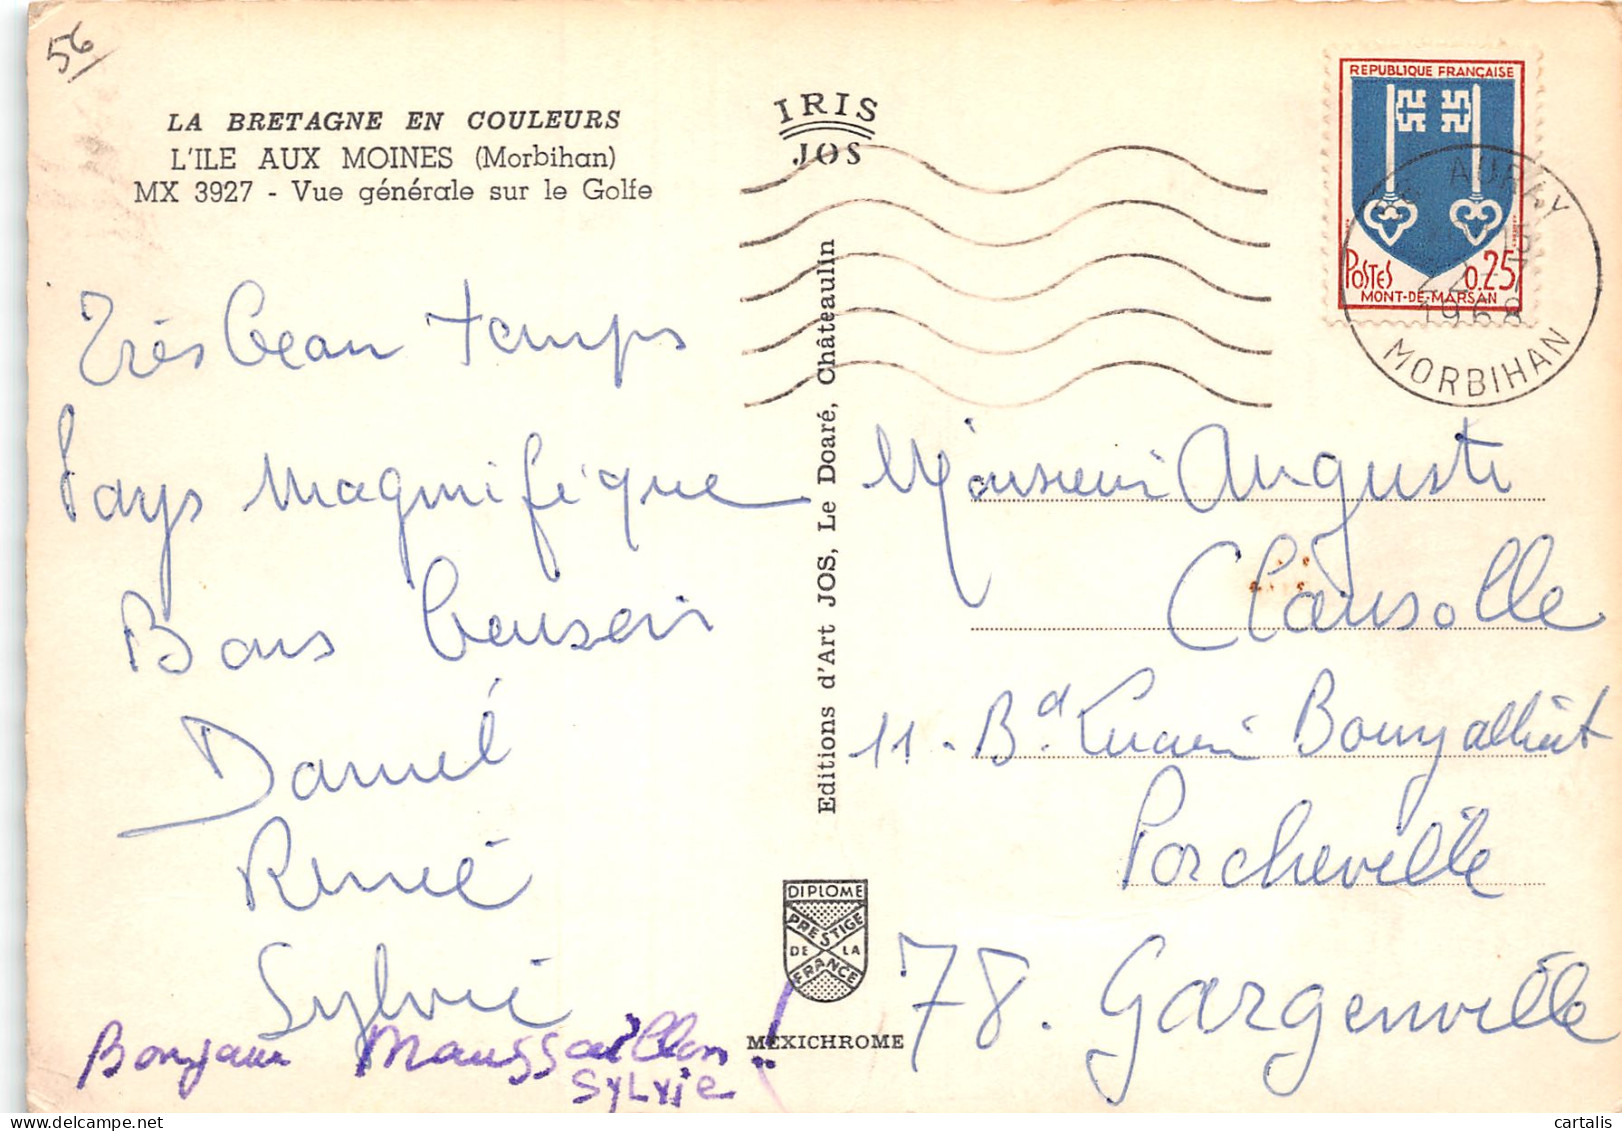 56
LA BRETAGNE EN COULEURS
L'ILE AUX MOINES (Morbihan)
MX 3927 - Vue générale sur le Golfe
IRIS
JOS
REPUBLIQUE FRANÇAISE
POSTES 0.25
MONT-DE-MARSAN
AURAY
15
22
1968
MORBIHAN
Très beau temps
Pays magnifique
Bons baisers
Daniel
Renée
Sylvie
Bonjour
SYLVIE
Editions d'Art JOS, Le Doaré, Châteaulin
DIPLOME
PRESTIGE
DE LA
FRANCE
MEXICHROME
Monsieur Auguste
Clausolle
11. Bd. Lucien
Porcheville
78. Gargenville
cartalis